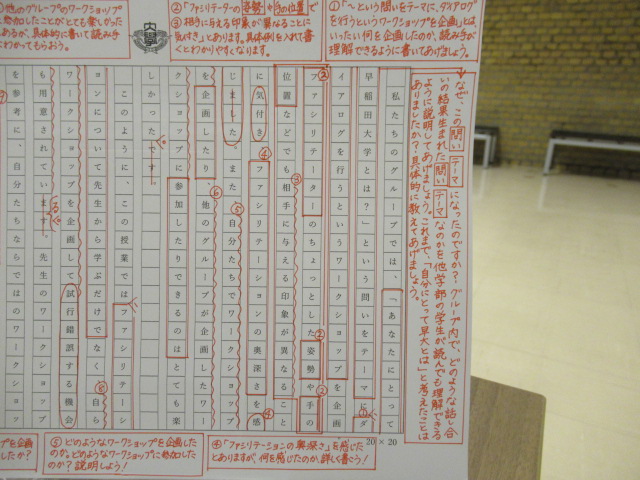 ①「〜という問いをテーマに、ダイアログ
を行うというワークショップを企画」とは
いったい何を企画したのか、読み手が
理解できるように書いてあげましょう。
②「ファシリテーターの姿勢や手の位置」で
③相手に与える印象が異なることに
気付き」とあります。具体例を入れて書
くとわかりやすくなります。
他のグループのワークショップ
参加したことがとても楽しかった
あるが、具体的に書いて読み手に
わかってもらおう。
なぜ、この問いテーマになったのですか？グループ内で、どのような話し合
いの結果生まれた問いテーマなのかを他学部の学生が読んでも理解できる
ように説明してあげましょう。これまで、「自分にとって早大とは」と考えたことは
ありましたか？具体的に教えてあげましょう。
私たちのグループでは、「あなたにとって
早稲田大学とは？」という問いをテーマにダ
イアログを行うというワークショップを企画
②ファシリテーターのちょっとした②姿勢や②手の
位置などでも③相手に与える印象が異なること
に気付き④ファシリテーションの奥深さを感④
じましたまた⑤自分たちでワークショップ
を企画したり、⑥他のグループが企画したワー
クショップに参加したりできるのはとても楽
しかったです。
このように、この授業ではファシリテーシ
ョンについて先生から学ぶだけでなく⑧自ら
ワークショップを企画して試行錯誤する機会
も用意されています。先生のワークショップ
を参考に、自分たちならではのワークショッ
20×20
④「ファシリテーションの奥深さ」を感じた
とありますが、何を感じたのか、詳しく書こう！
⑤どのようなワークショップを企画した
のか。どのようなワークショップに参加した
のか？説明しよう！
プを企画
したか？